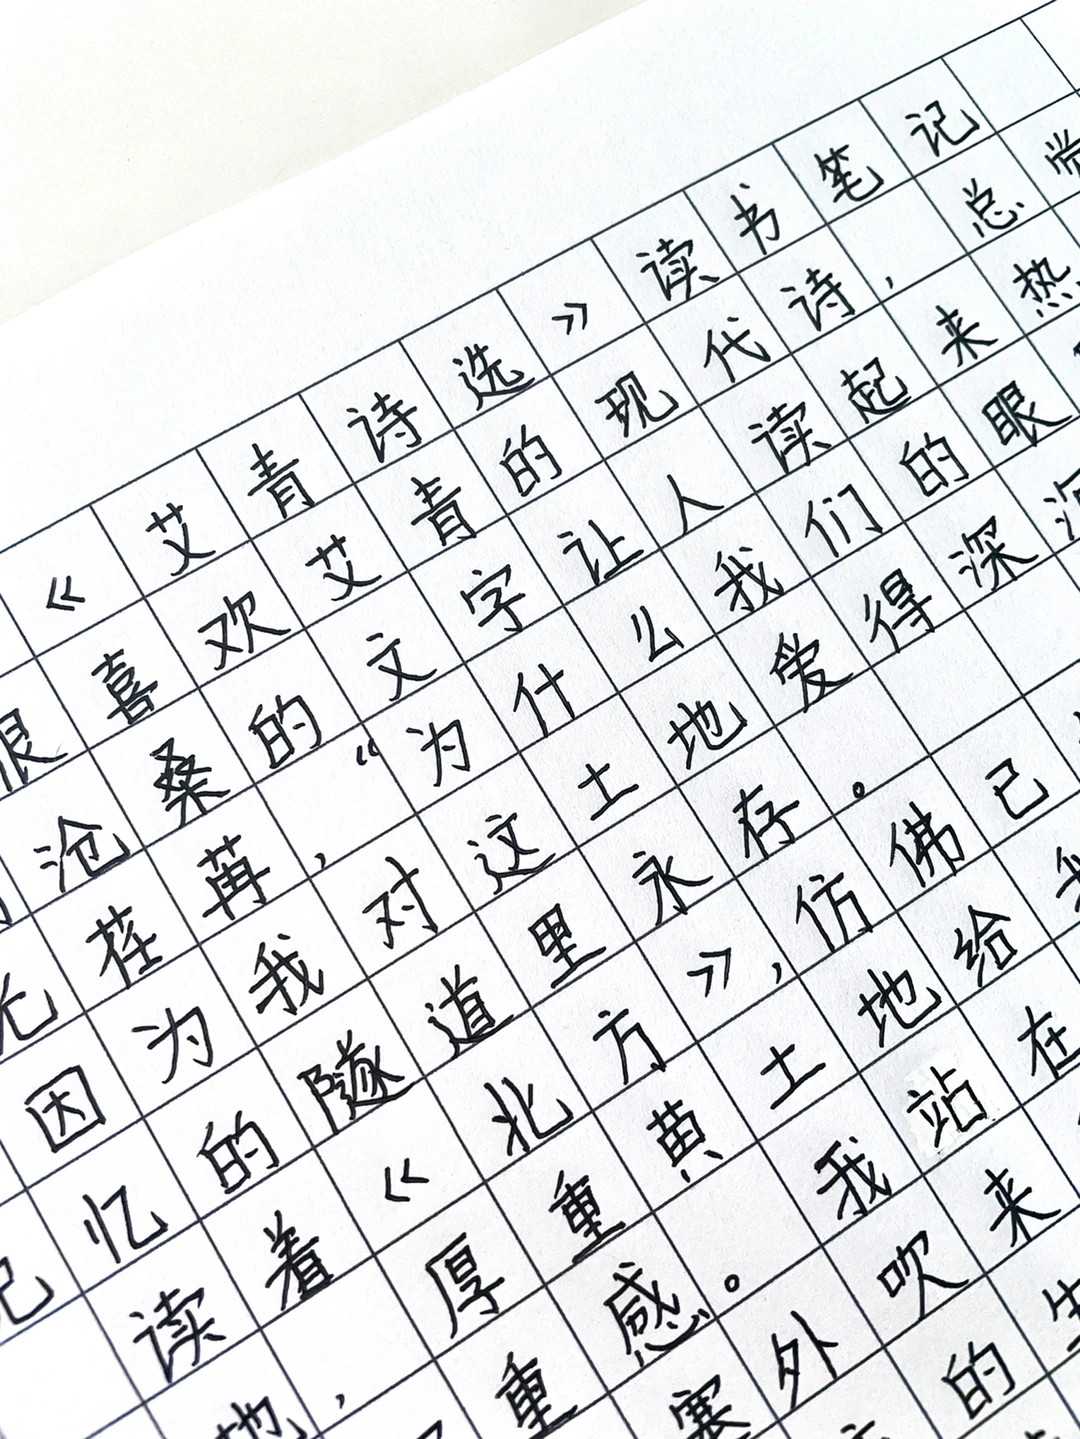 《艾青诗选》读书笔记
很喜欢艾青的现代诗，总觉
沧桑的文字让人读起来热
光荏苒，“为什么我们的眼
因为我对这土地爱得深沉
记忆的隧道里永存。
读着《北方》，仿佛己
地，厚重黄土地给我
重感。我站在
塞外吹来
的生